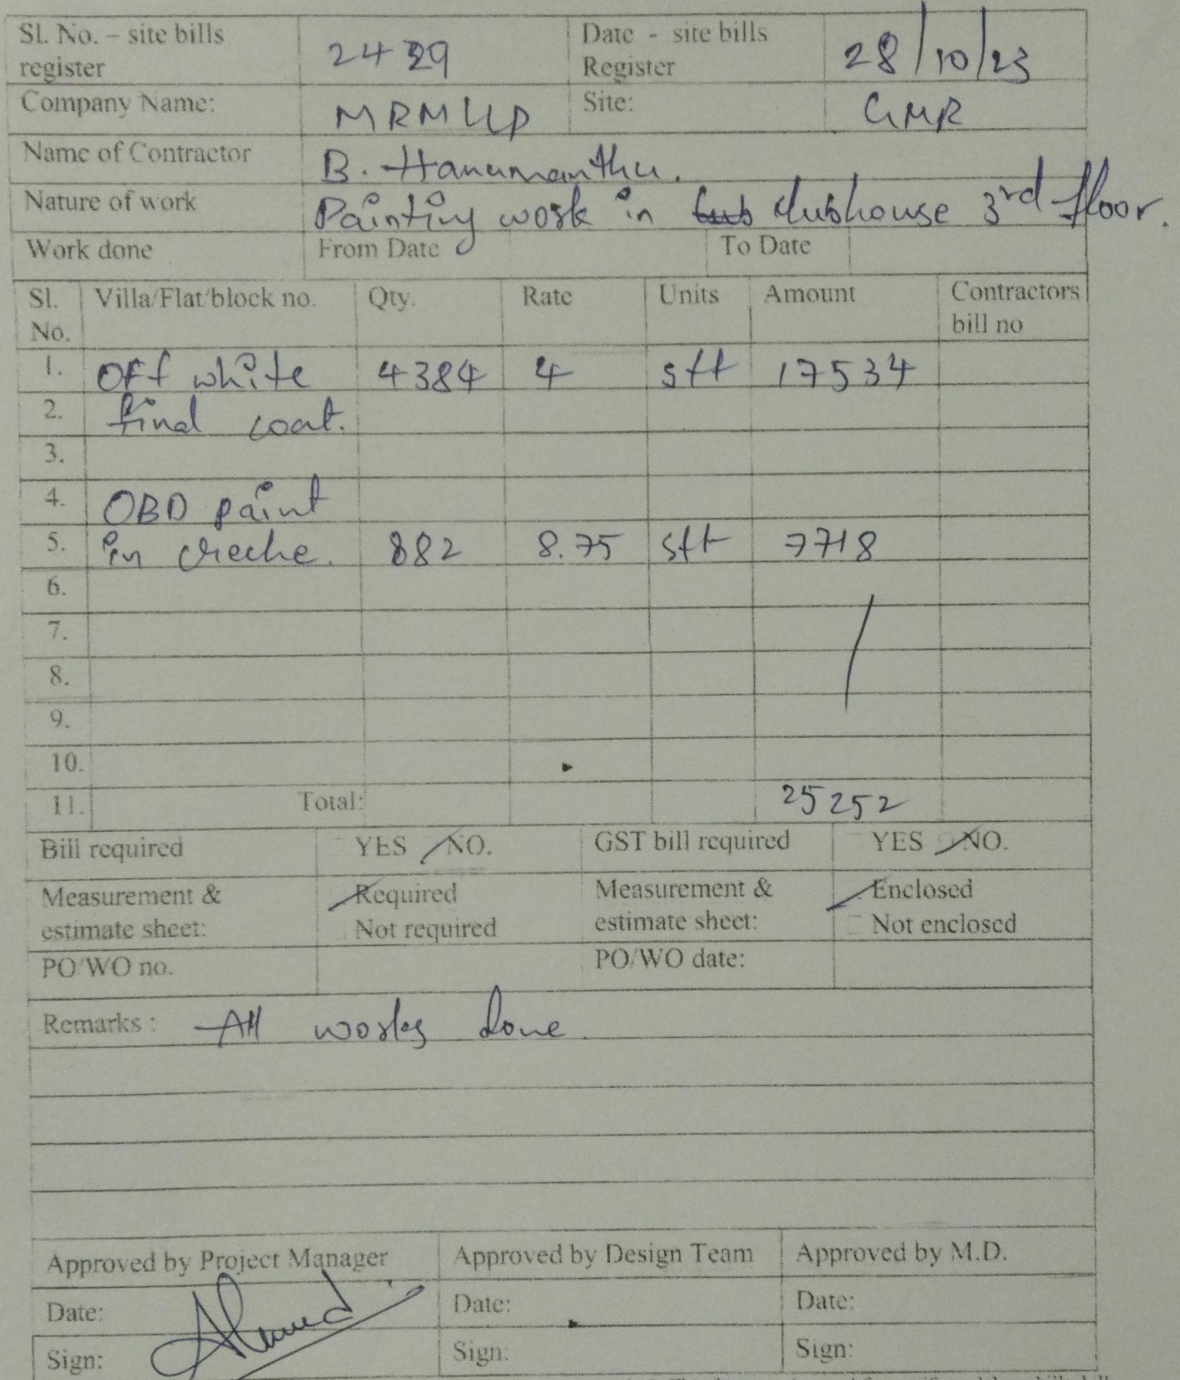 Sl. No. – site bills register 2429 Date - site bills Register 28/10/23
Company Name: MRMLLP Site: GMR
Name of Contractor B. Hanumanthu.
Nature of work Painting work in clubhouse 3rd floor.
Work done From Date To Date
Sl. No. Villa/Flat/block no. Qty. Rate Units Amount Contractors bill no
1. Off white 4384 4 sft 17534
2. final coat.
3.
4. OBD paint
5. in creche. 882 8.75 sft 7718
6.
7.
8.
9.
10.
11. Total: 25252
Bill required YES NO. GST bill required YES NO.
Measurement & estimate sheet: Required Not required Measurement & estimate sheet: Enclosed Not enclosed
PO/WO no. PO/WO date:
Remarks : All works done.
Approved by Project Manager Approved by Design Team Approved by M.D.
Date: Date: Date:
Sign: Sign: Sign: